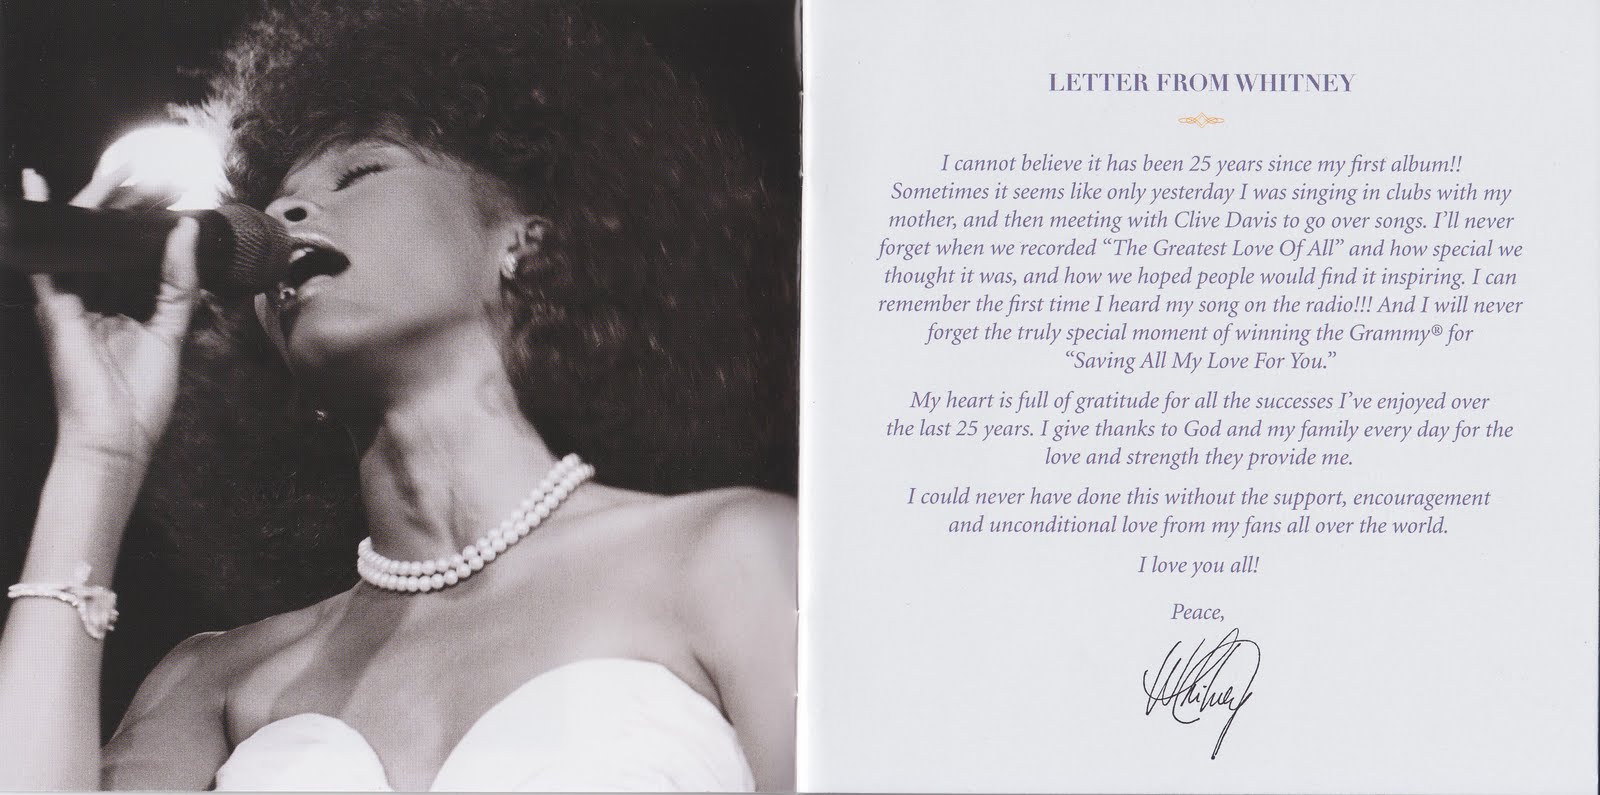 LETTER FROM WHITNEY
I cannot believe it has been 25 years since my first album!!
Sometimes it seems like only yesterday I was singing in clubs with my
mother, and then meeting with Clive Davis to go over songs. I’ll never
forget when we recorded “The Greatest Love Of All” and how special we
thought it was, and how we hoped people would find it inspiring. I can
remember the first time I heard my song on the radio!!! And I will never
forget the truly special moment of winning the Grammy® for
“Saving All My Love For You.”
My heart is full of gratitude for all the successes I’ve enjoyed over
the last 25 years. I give thanks to God and my family every day for the
love and strength they provide me.
I could never have done this without the support, encouragement
and unconditional love from my fans all over the world.
I love you all!
Peace,
Whitney